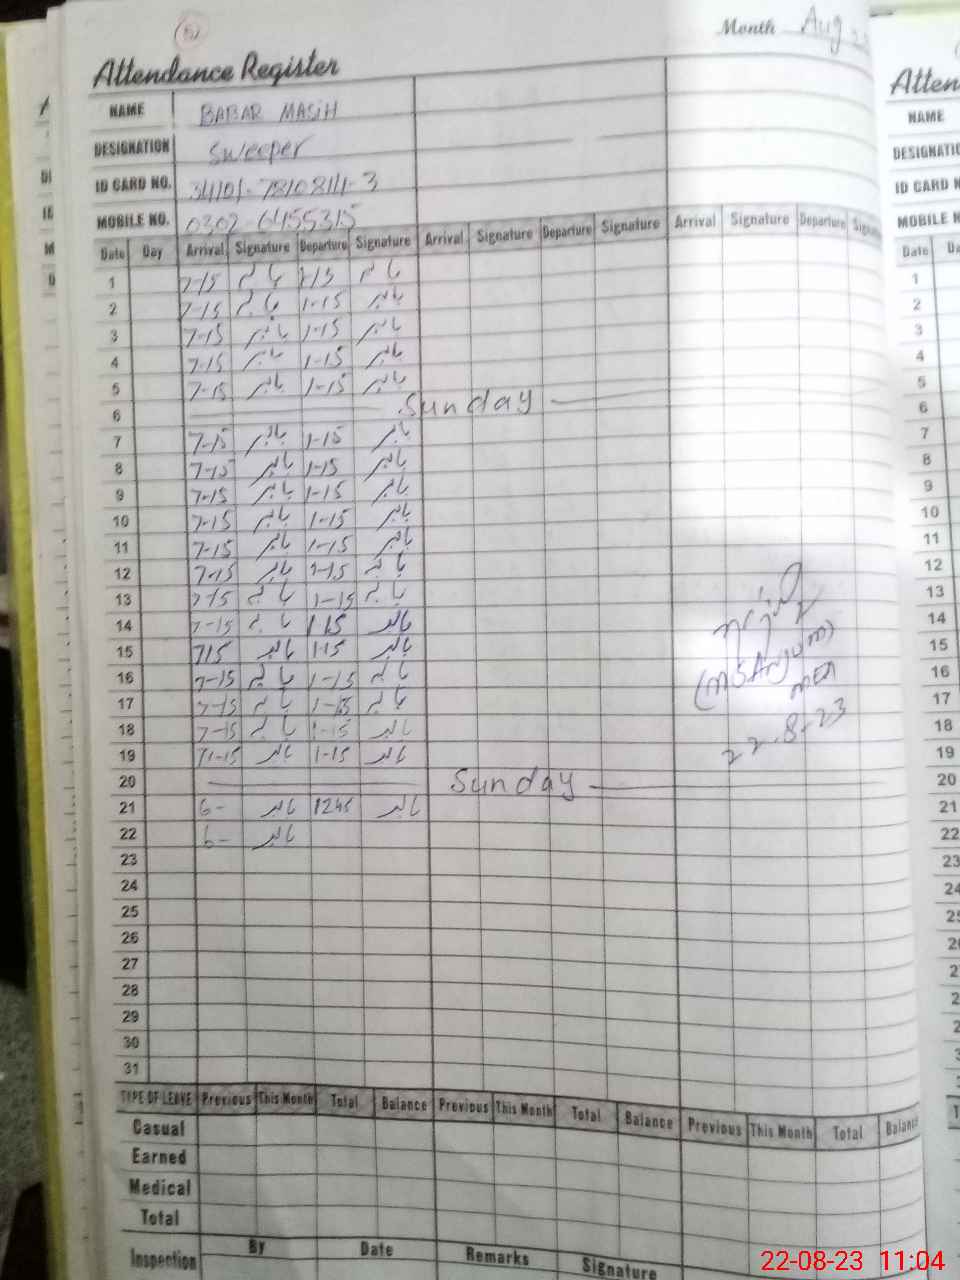 5
Month Aug 23
Attendance Register
NAME BABAR MASIH
DESIGNATION Sweeper
ID CARD NO.
MOBILE NO. 0302-6455315
Date Day Arrival Signature Departure Signature Arrival Signature Departure Signature Arrival Signature Departure
1 7-15 بابر 1-15 بابر
2 7-15 بابر 1-15 بابر
3 7-15 بابر 1-15 بابر
4 7-15 بابر 1-15 بابر
5 7-15 بابر 1-15 بابر
6 Sunday
7 7-15 بابر 1-15 بابر
8 7-15 بابر 1-15 بابر
9 7-15 بابر 1-15 بابر
10 7-15 بابر 1-15 بابر
11 7-15 بابر 1-15 بابر
12 7-15 بابر 1-15 بابر
13 7-15 بابر 1-15 بابر
14 7-15 بابر 1 15 بابر
15 715 بابر 1-15 بابر
16 7-15 بابر 1-15 بابر
17 7-15 بابر 1-15 بابر
18 7-15 بابر 1-15 بابر
19 بابر 1-15 بابر
20 Sunday
21 6- بابر 1245 بابر
22 6- بابر
23
24
25
26
27
28
29
30
31
(MSAnjum)
MEA
22-8-23
TYPE OF LEAVE Previous This Month Total Balance Previous This Month Total Balance Previous This Month Total Balance
Casual
Earned
Medical
Total
Inspection By Date Remarks Signature
Atten
NAME
DESIGNATIO
ID CARD N
MOBILE N
Date Da
1
2
3
4
5
6
7
8
9
10
11
12
13
14
15
16
17
18
19
20
21
22
23
22-08-23 11:04